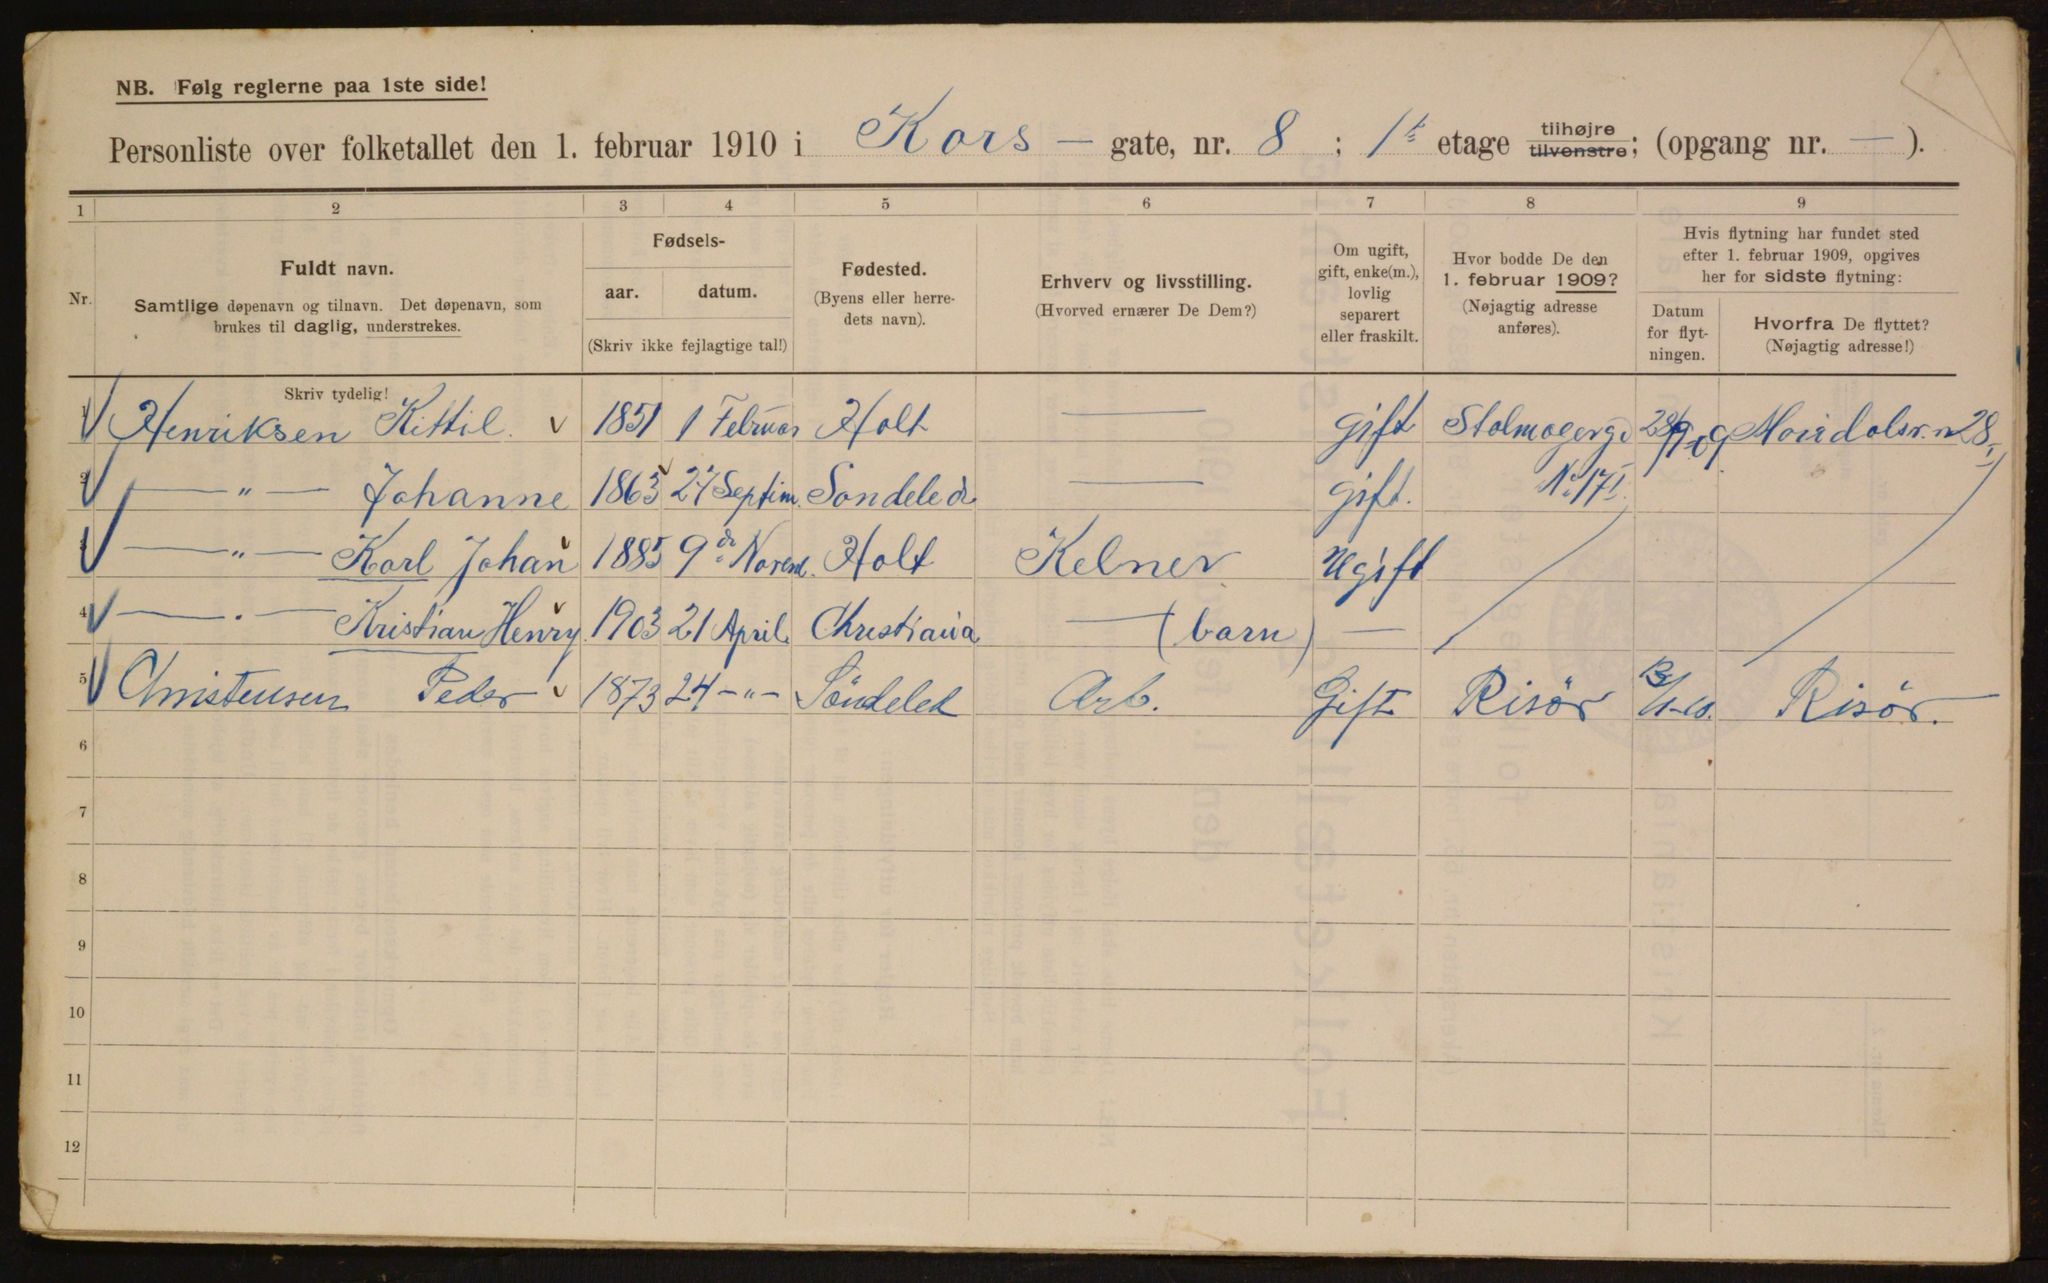 NB. Følg reglerne paa 1ste side!
Personliste over folketallet den 1. februar 1910 i Kors – gate, nr. 8 ; 1ste etage tilhøjre tilvenstre; (opgang nr. — ).
1 2 3 4 5 6 7 8 9
Nr.
Fuldt navn.
Samtlige døpenavn og tilnavn. Det døpenavn, som
brukes til daglig, understrekes.
Fødsels-
aar. datum.
(Skriv ikke fejlagtige tal!)
Fødested.
(Byens eller herre-
dets navn).
Erhverv og livsstilling.
(Hvorved ernærer De Dem?)
Om ugift,
gift, enke(m.),
lovlig
separert
eller fraskilt.
Hvor bodde De den
1. februar 1909?
(Nøjagtig adresse
anføres).
Hvis flytning har fundet sted
efter 1. februar 1909, opgives
her for sidste flytning:
Datum
for flyt-
ningen.
Hvorfra De flyttet?
(Nøjagtig adresse!)
Skriv tydelig!
1 Henriksen Kittil 1851 1 Februar Holt — gift 28/9 09 28
2 —„— Johanne 1865 27 Septim. Sondeled — gift. No 17 I
3 —„— Karl Johan 1885 9de Novem. Holt Kelner Ugift
4 —„— Kristian Henry 1903 21 April Christiania — (barn) —
5 Christensen Peder 1873 24 -„- Söndeled Arb. Gift Risör Risör.
6
7
8
9
10
11
12